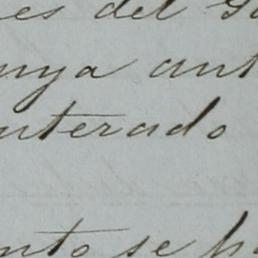 es del Go
nya ant
nterado
nto se p